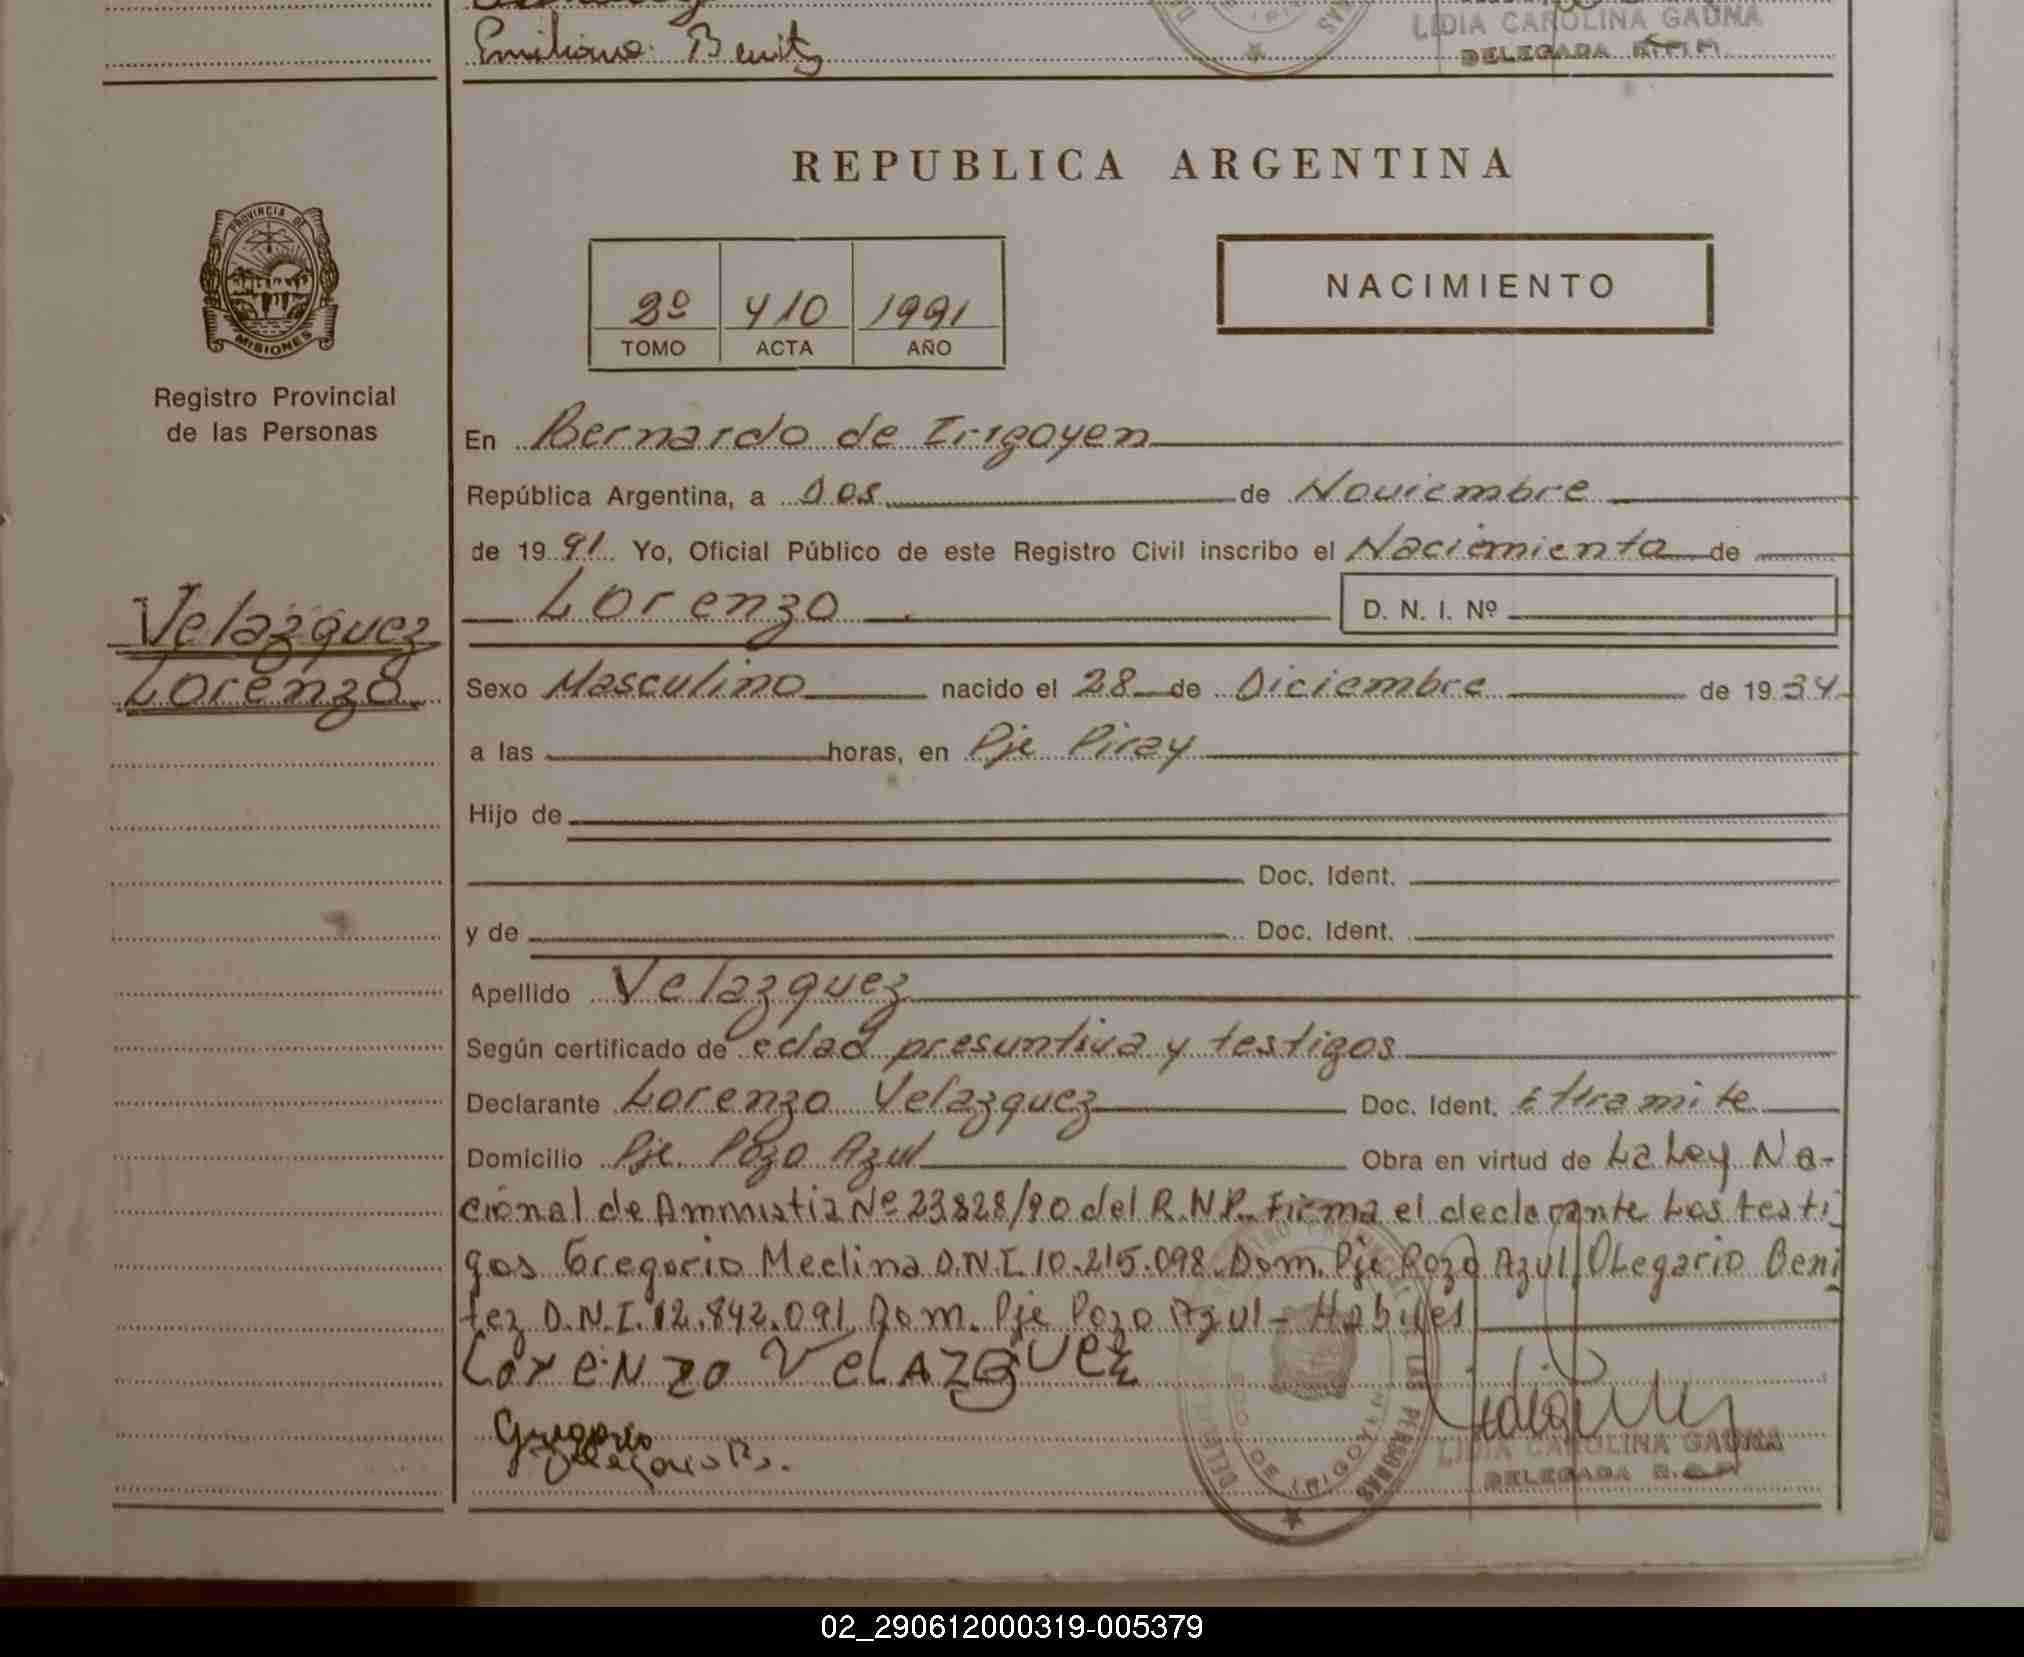 Emiliano Benitz
LIDIA CAROLINA GAUNA
DELEGADA
REPUBLICA ARGENTINA
PROVINCIA DE
MISIONES
2º 410 1991
TOMO ACTA AÑO
NACIMIENTO
Registro Provincial
de las Personas
En Bernardo de Irigoyen
República Argentina, a Dos de Noviembre
de 1991 Yo, Oficial Público de este Registro Civil inscribo el Naciemiento de
Lorenzo D. N. I. Nº
Velazquez
Lorenzo
Sexo Masculino nacido el 28 de Diciembre de 1934
a las horas, en Pje Piray
Hijo de
Doc. Ident.
y de Doc. Ident.
Apellido Velazquez
Según certificado de edad presuntiva y testigos
Declarante Lorenzo Velazquez Doc. Ident. Etramite
Domicilio Pje. Pozo Azul Obra en virtud de La Ley Na-
cional de Ammistia Nº 23828/90 del R.N.P. Firma el declarante Los testi
gos Gregorio Medina D.N.I. 10.215.098. Dom. Pje Pozo Azul, Olegario Beni
tez D.N.I. 12.842.091 Dom. Pje Pozo Azul - Habiles
LorENzo VELAZQUEZ
Gregorio
Olegario B.
LIDIA CAROLINA GAUNA
DELEGADA
02_290612000319-005379